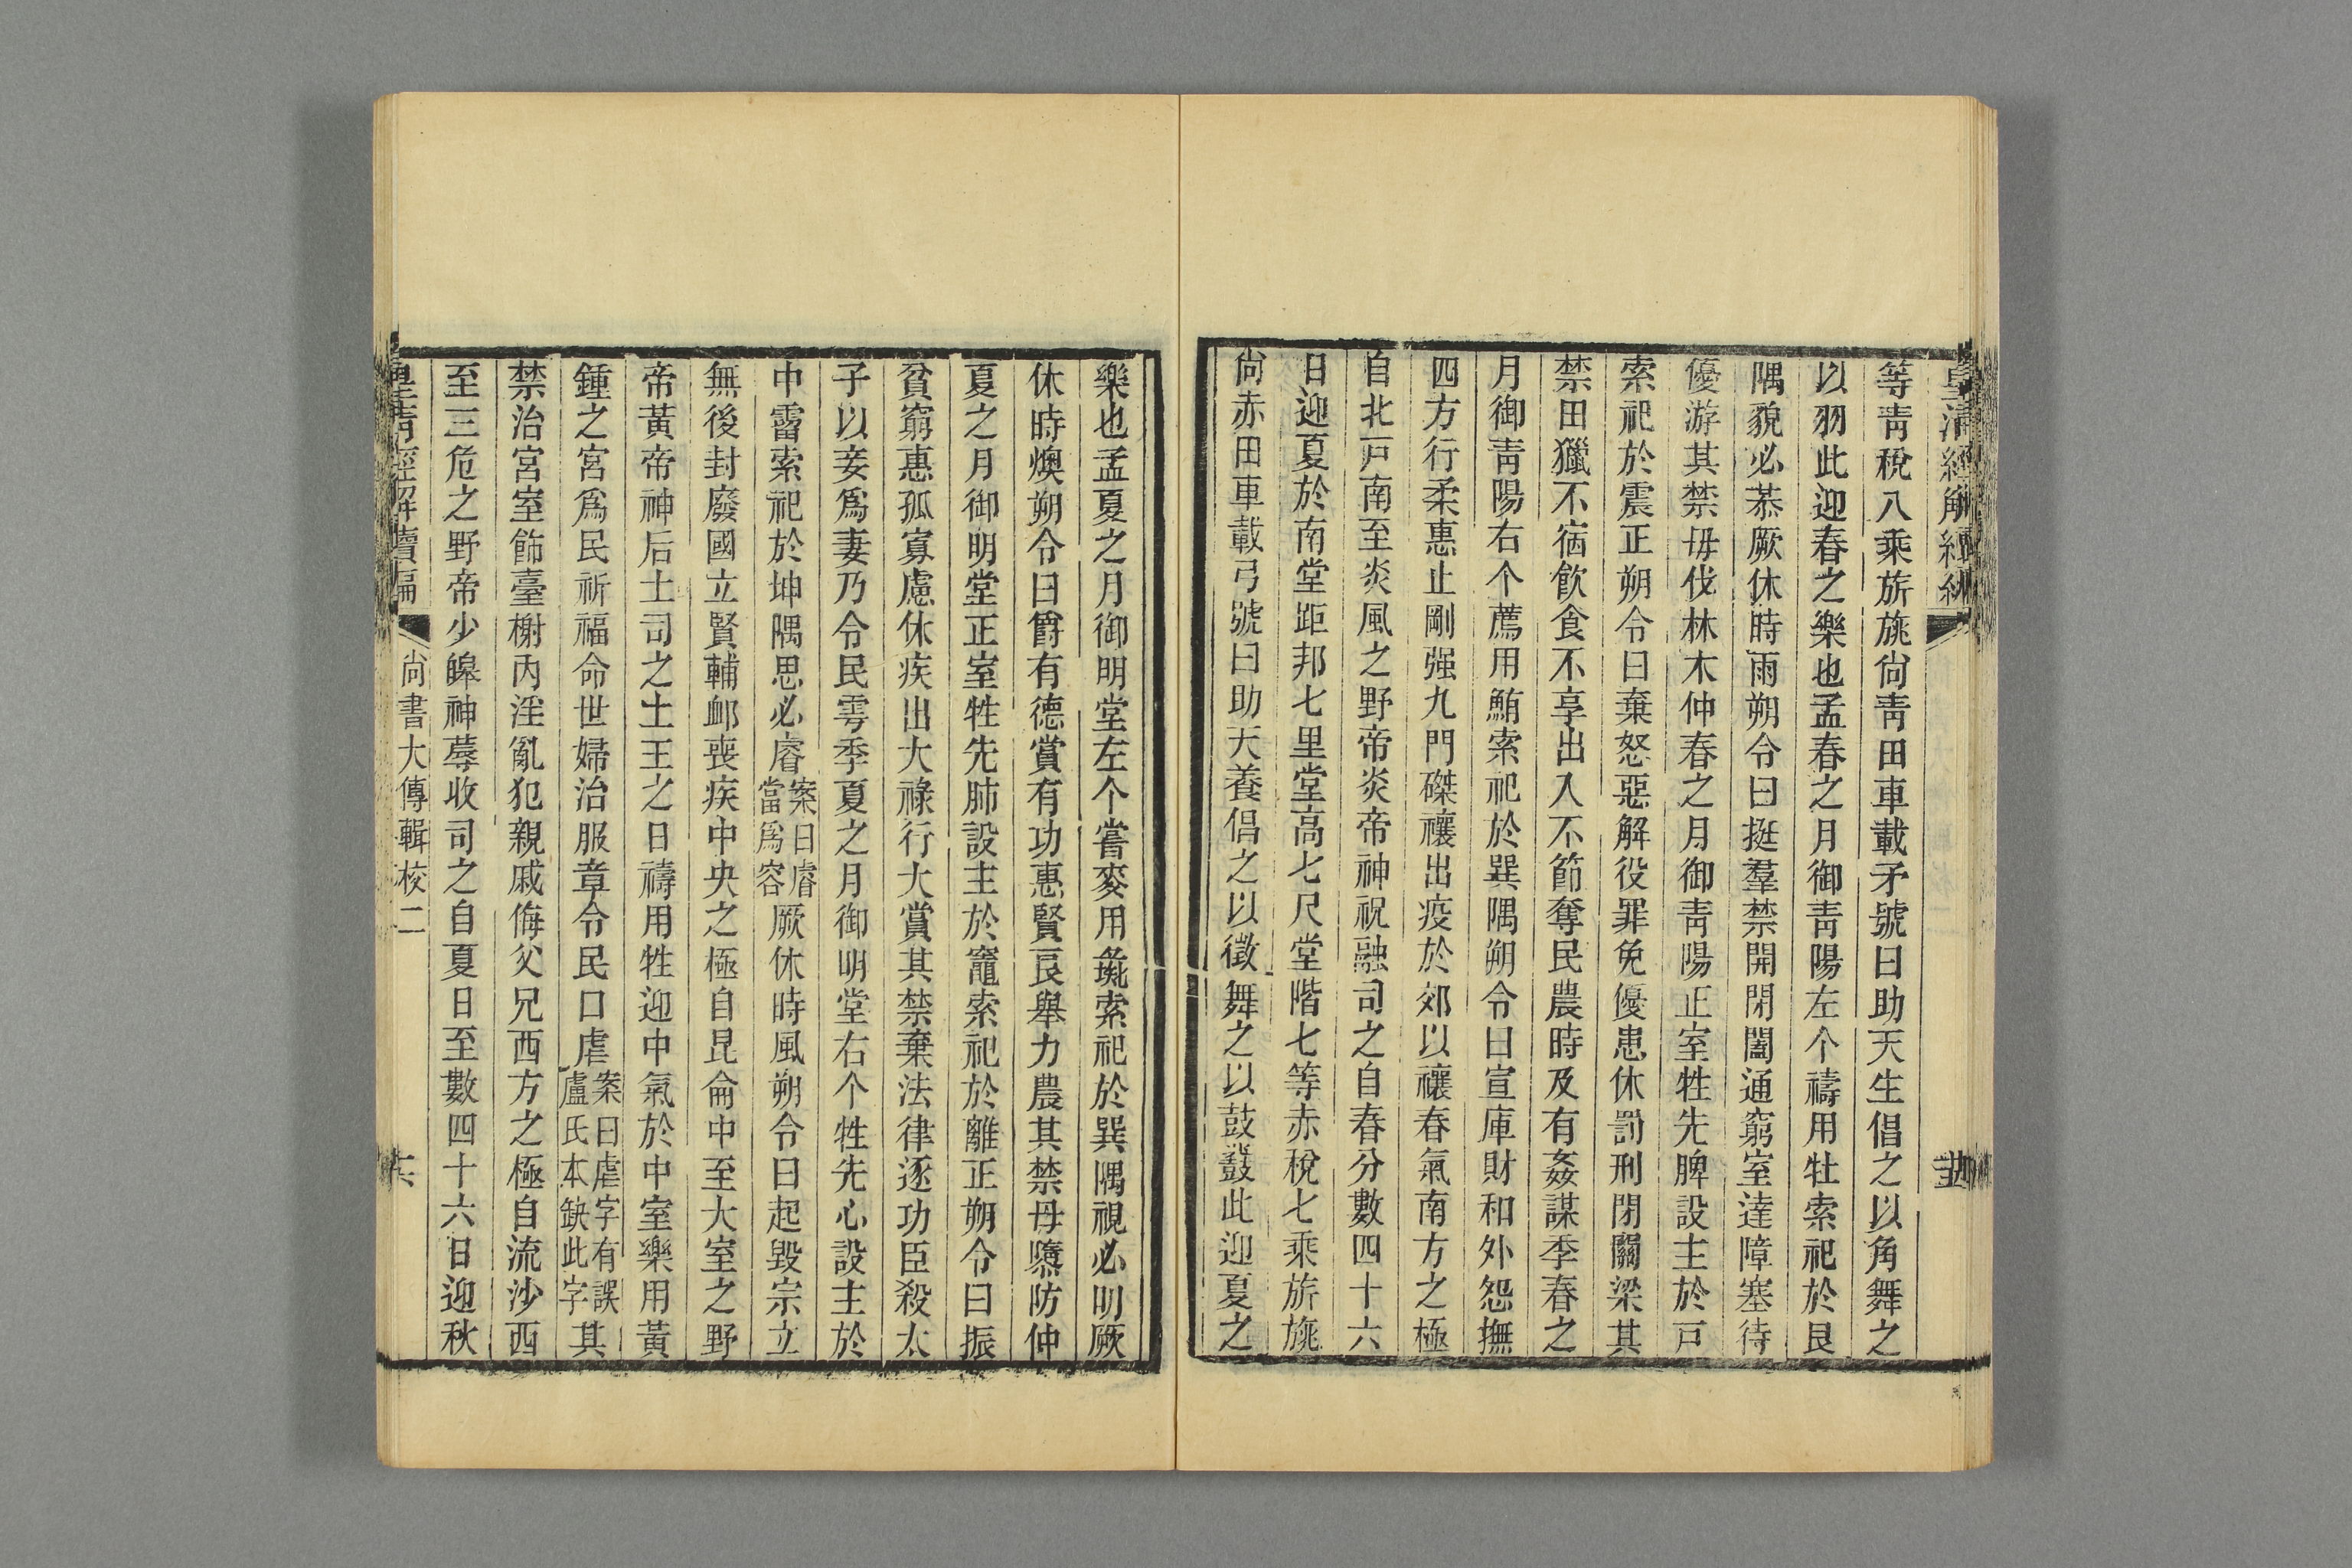 皇清經解續編
等青稅八乘旂旄尙青田車載矛號曰助天生倡之以角舞之
以羽此迎春之樂也孟春之月御青陽左个禱用牡索祀於艮
隅貌必恭厥休時雨朔令曰挺羣禁開閉闔通窮室達障塞待
優游其禁毋伐林木仲春之月御青陽正室牲先脾設主於戸
索祀於震正朔令曰棄怒惡解役罪免優患休罰刑閉關梁其
禁田獵不宿飮食不享出入不節奪民農時及有姦謀季春之
月御青陽右个薦用鮪索祀於巽隅朔令曰宣庫財和外怨撫
四方行柔惠止剛强九門磔禳出疫於郊以禳春氣南方之極
自北戸南至炎風之野帝炎帝神祝融司之自春分數四十六
日迎夏於南堂距邦七里堂高七尺堂階七等赤稅七乘旂旄
尙赤田車載弓號曰助天養倡之以徵舞之以鼓鼗此迎夏之
樂也孟夏之月御明堂左个嘗麥用彘索祀於巽隅視必明厥
休時燠朔令曰爵有德賞有功惠賢良舉力農其禁毋隳防仲
夏之月御明堂正室牲先肺設主於竈索祀於離正朔令曰振
貧窮惠孤寡慮休疾出大祿行大賞其禁棄法律逐功臣殺太
子以妾爲妻乃令民雩季夏之月御明堂右个牲先心設主於
中霤索祀於坤隅思必睿案曰睿當爲容厥休時風朔令曰起毀宗立
無後封廢國立賢輔卹喪疾中央之極自昆侖中至大室之野
帝黃帝神后土司之土王之日禱用牲迎中氣於中室樂用黃
鍾之宮爲民祈福命世婦治服章令民口虐案曰虐字有誤盧氏本缺此字其
禁治宮室飾臺榭內淫亂犯親戚侮父兄西方之極自流沙西
至三危之野帝少皞神蓐收司之自夏日至數四十六日迎秋
皇清經解續編 尙書大傳輯校二